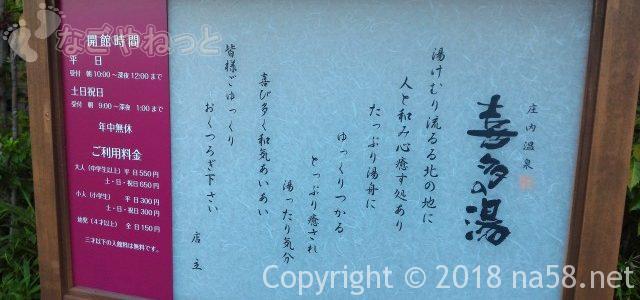 なごやねっと
開館時間
平　日
受付　朝10:00～深夜12:00まで
土日祝日
受付　朝　9:00～深夜　1:00まで
年中無休
ご利用料金
大人（中学生以上）平日550円
土・日・祝650円
小人（小学生）　平日300円
土・日・祝300円
幼児（４才以上）　全日150円
三才以下の入館料は無料です。
庄内温泉
喜多の湯
湯けむり流るる北の地に
人と和み心癒す処あり
たっぷり湯舟に
ゆっくりつかる
とっぷり癒され
湯ったり気分
喜び多く和気あいあい
皆様ごゆっくり
おくつろぎ下さい
店主
Copyright © 2018 na58.net